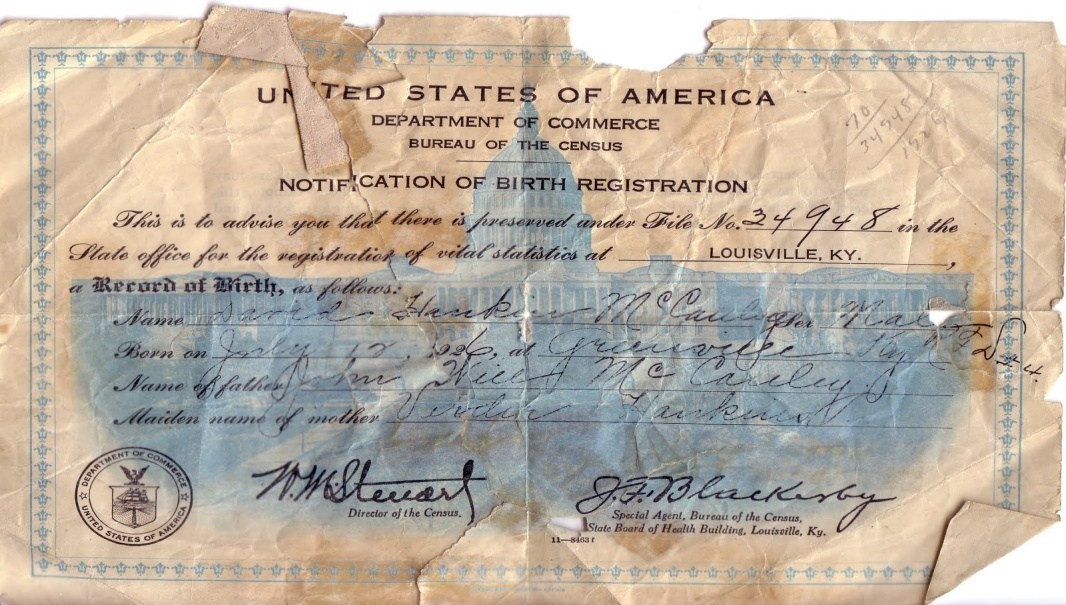 UNITED STATES OF AMERICA
DEPARTMENT OF COMMERCE
BUREAU OF THE CENSUS
NOTIFICATION OF BIRTH REGISTRATION
34948
This is to advise you that there is preserved under File No. 34948 in the
State office for the registration of vital statistics at LOUISVILLE, KY.,
a Record of Birth, as follows:
Name David Hankins McCauley Sex Male
Born on July 12, 1926, at Greenville Ky RFD #4.
Name of father John Wice McCauley
Maiden name of mother Hankins
DEPARTMENT OF COMMERCE
UNITED STATES OF AMERICA
W. M. Steuart
Director of the Census.
J. F. Blackerby
Special Agent, Bureau of the Census,
State Board of Health Building, Louisville, Ky.